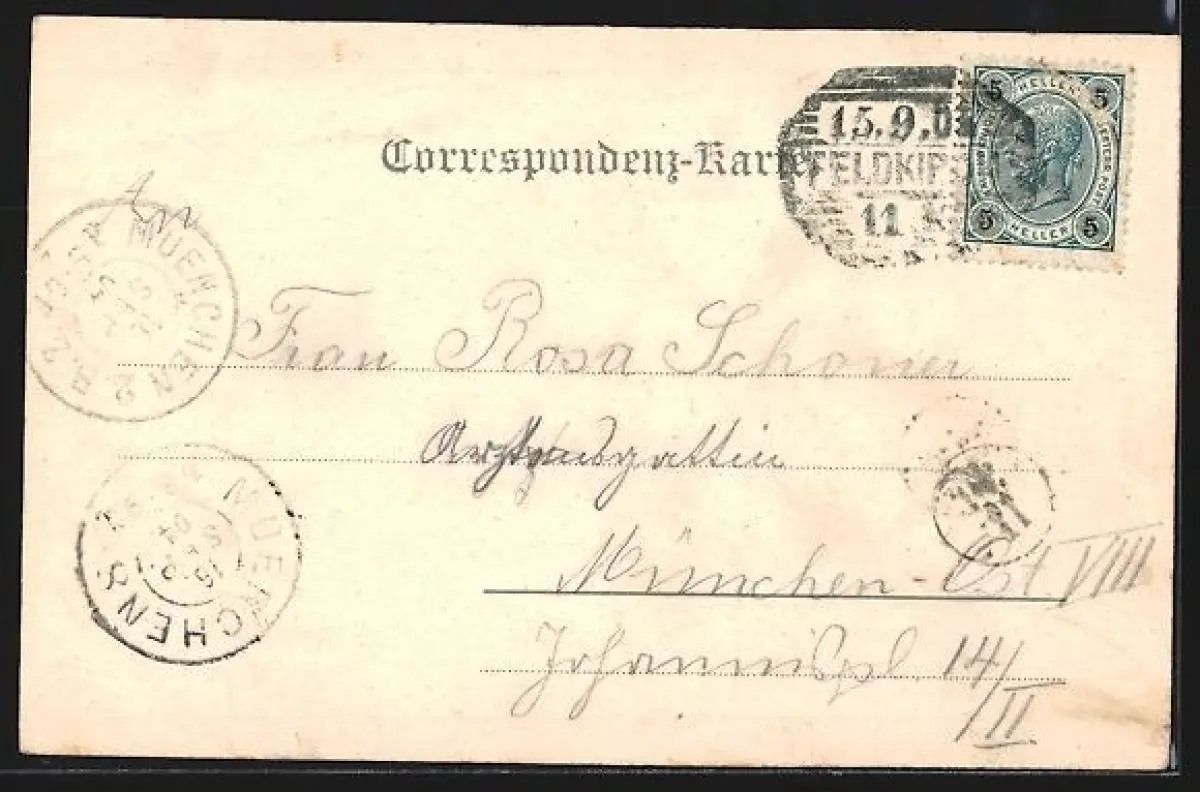 Correspondenz-Karte
15.9.0
FELDKIR
11
5 HELLER 5
5 HELLER 5
An
MUENCHEN 2 B.Z.
Frau Rosa Schorer
MUENCHEN 8
München-Ost VIII
Johannispl. 14/II